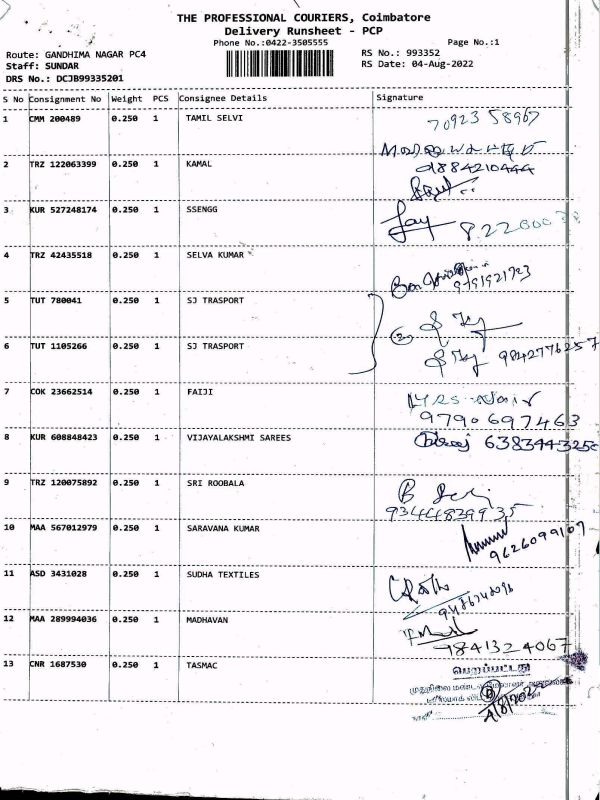 THE PROFESSIONAL COURIERS, Coimbatore
Delivery Runsheet - PCP
Phone No.:0422-3505555
Page No.:1
Route: GANDHIMA NAGAR PC4
RS No.: 993352
Staff: SUNDAR
RS Date: 04-Aug-2022
DRS No.: DCJB99335201
S No Consignment No Weight PCS Consignee Details Signature
1 CMM 200489 0.250 1 TAMIL SELVI 70923 58967
2 TRZ 122063399 0.250 1 KAMAL 9884210444
3 KUR 527248174 0.250 1 SSENGG Jay
4 TRZ 42435518 0.250 1 SELVA KUMAR 9791921793
5 TUT 780041 0.250 1 SJ TRASPORT
6 TUT 1105266 0.250 1 SJ TRASPORT 9842776257
7 COK 23662514 0.250 1 FAIJI
9790697463
8 KUR 608848423 0.250 1 VIJAYALAKSHMI SAREES 6383443250
9 TRZ 120075892 0.250 1 SRI ROOBALA
9344839935
10 MAA 567012979 0.250 1 SARAVANA KUMAR 9626099109
11 ASD 3431028 0.250 1 SUDHA TEXTILES
12 MAA 289994036 0.250 1 MADHAVAN
9841324067
13 CNR 1687530 0.250 1 TASMAC பெறப்பட்டது